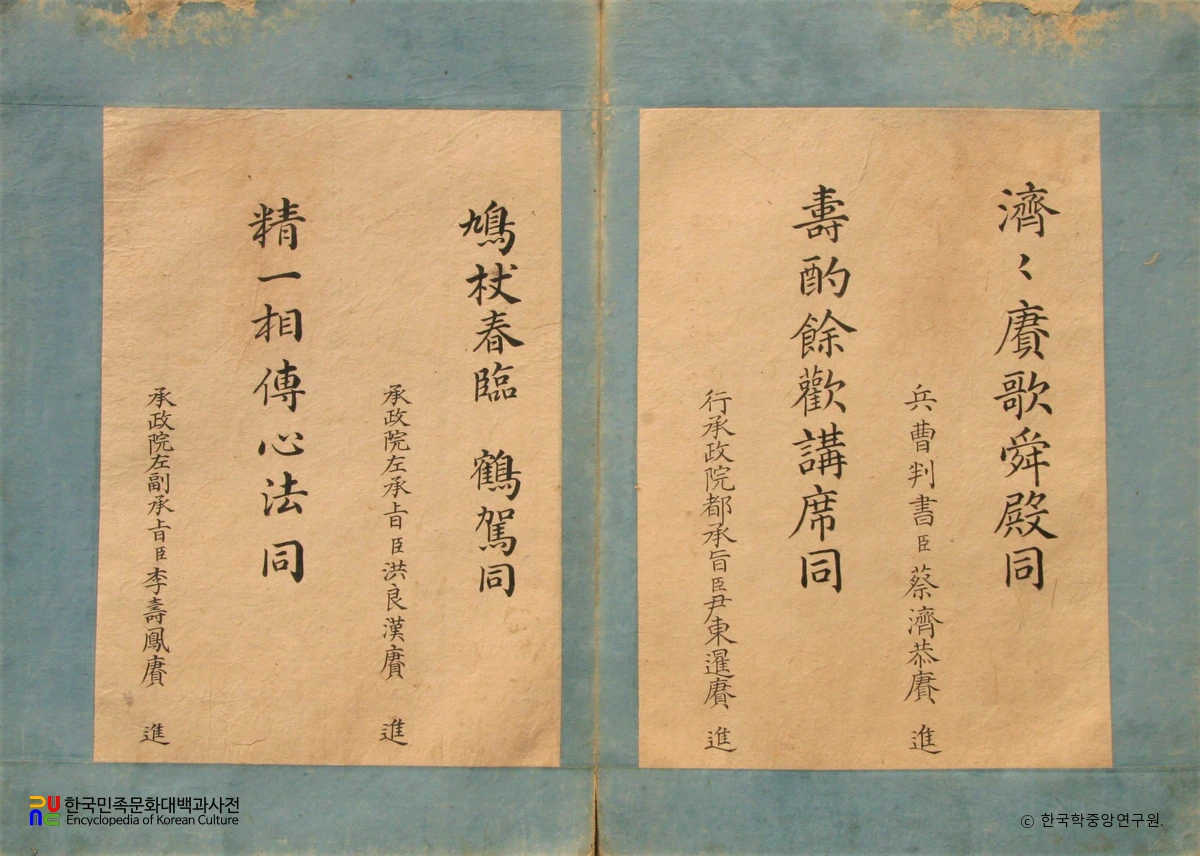 濟〻賡歌舜殿同
兵曹判書臣蔡濟恭賡 進
壽酌餘歡講席同
行承政院都承旨臣尹東暹賡 進
鳩杖春臨 鶴駕同
承政院左承旨臣洪良漢賡 進
精一相傳心法同
承政院左副承旨臣李壽鳳賡 進
한국민족문화대백과사전
Encyclopedia of Korean Culture
ⓒ 한국학중앙연구원.